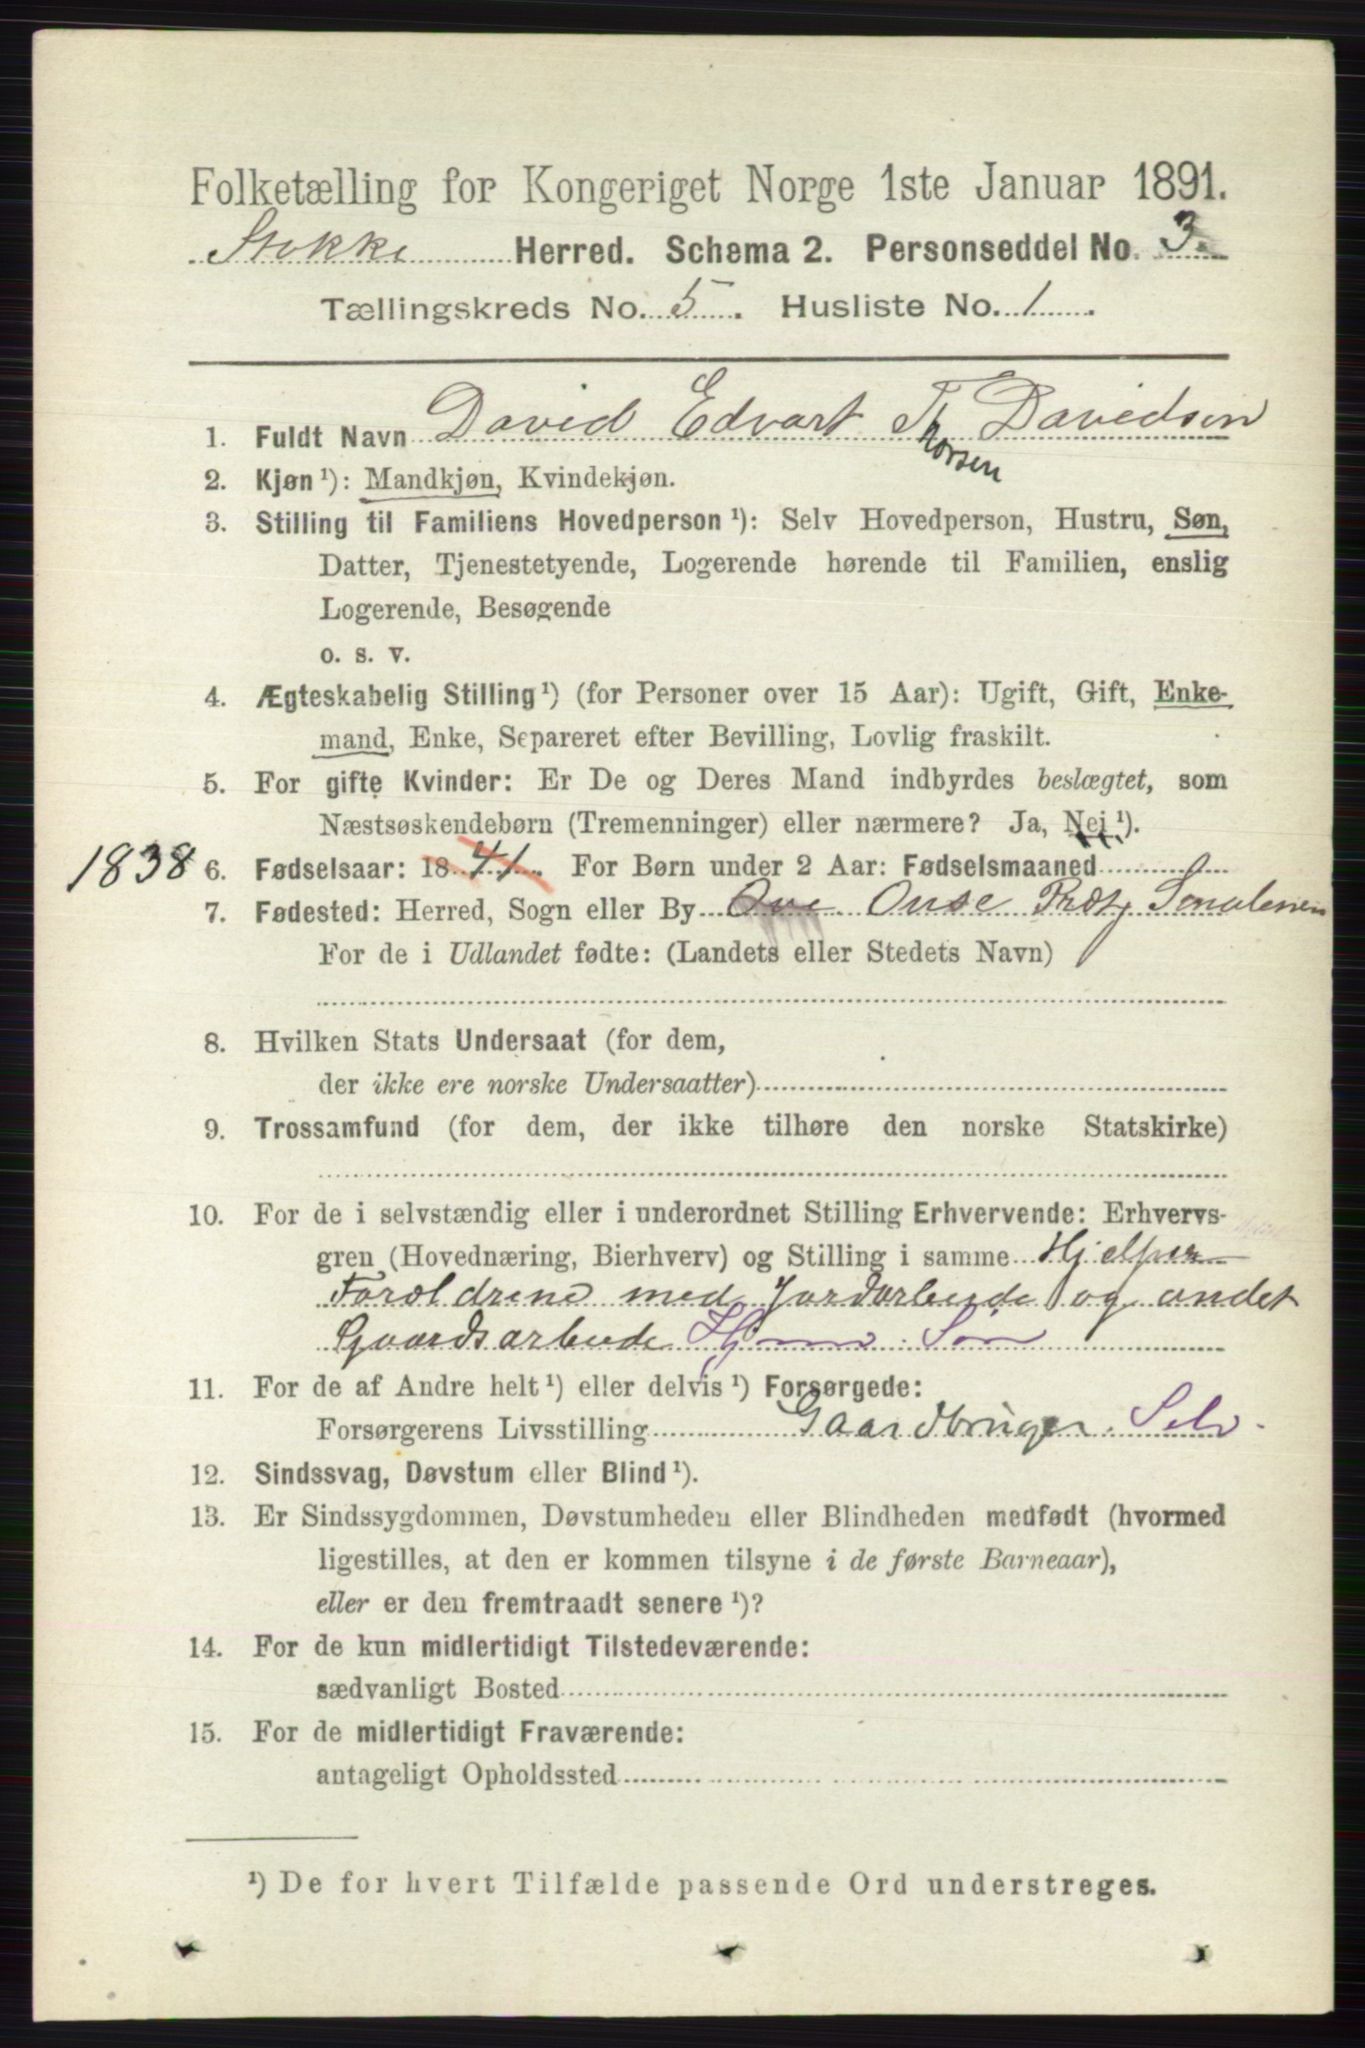 Folketælling for Kongeriget Norge 1ste Januar 1891.
Stokke Herred. Schema 2. Personseddel No. 3.
Tællingskreds No. 5. Husliste No. 1.
1. Fuldt Navn David Edvart Th Davidsen
Thorsen
2. Kjøn ¹): Mandkjøn, Kvindekjøn.
3. Stilling til Familiens Hovedperson ¹): Selv Hovedperson, Hustru, Søn,
Datter, Tjenestetyende, Logerende hørende til Familien, enslig
Logerende, Besøgende
o. s. v.
4. Ægteskabelig Stilling ¹) (for Personer over 15 Aar): Ugift, Gift, Enke-
mand, Enke, Separeret efter Bevilling, Lovlig fraskilt.
5. For gifte Kvinder: Er De og Deres Mand indbyrdes beslægtet, som
Næstsøskendebørn (Tremenninger) eller nærmere? Ja, Nej ¹).
1838 6. Fødselsaar: 1841. For Børn under 2 Aar: Fødselsmaaned
7. Fødested: Herred, Sogn eller By Onsø Præstgj Smalenene
For de i Udlandet fødte: (Landets eller Stedets Navn)
8. Hvilken Stats Undersaat (for dem,
der ikke ere norske Undersaatter)
9. Trossamfund (for dem, der ikke tilhøre den norske Statskirke)
10. For de i selvstændig eller i underordnet Stilling Erhvervende: Erhvervs-
gren (Hovednæring, Bierhverv) og Stilling i samme Hjelper
Forældrene med Jordarbeide og andet
Gaardsarbeide Hjmv. Søn
11. For de af Andre helt ¹) eller delvis ¹) Forsørgede:
Forsørgerens Livsstilling Gaardbruger. Selv.
12. Sindssvag, Døvstum eller Blind ¹).
13. Er Sindssygdommen, Døvstumheden eller Blindheden medfødt (hvormed
ligestilles, at den er kommen tilsyne i de første Barneaar),
eller er den fremtraadt senere ¹)?
14. For de kun midlertidigt Tilstedeværende:
sædvanligt Bosted
15. For de midlertidigt Fraværende:
antageligt Opholdssted
¹) De for hvert Tilfælde passende Ord understreges.